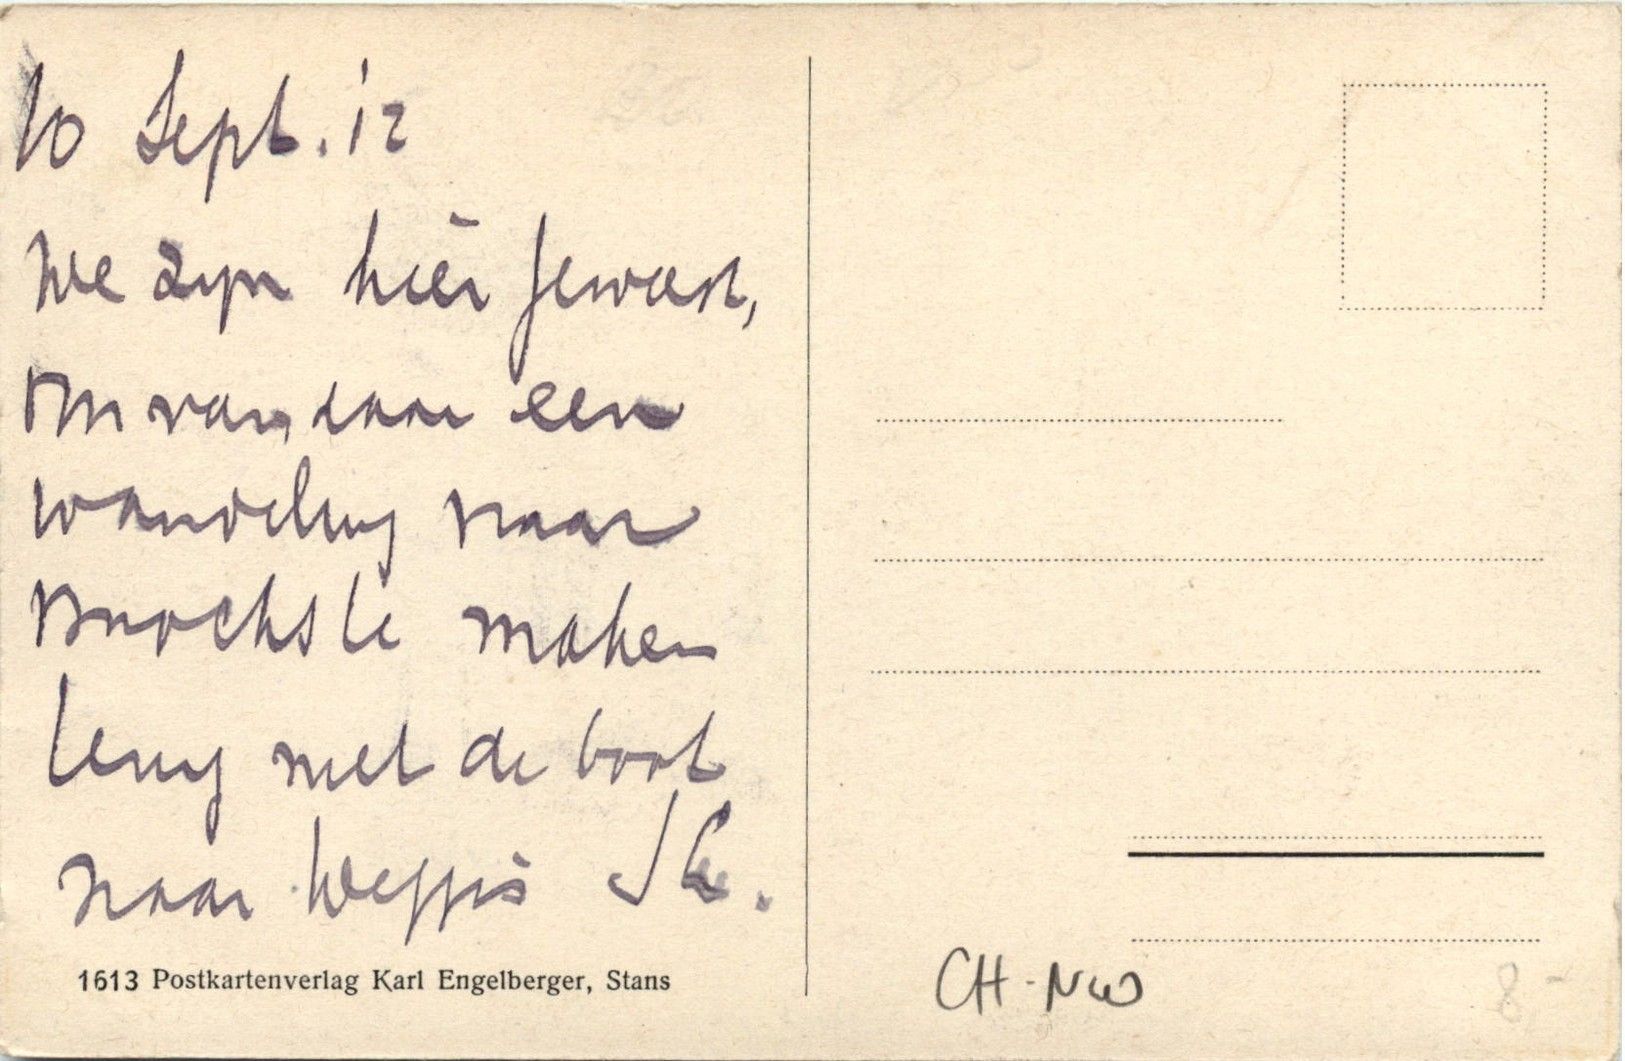 10 Sept. 12
We zijn hier geweest,
om van daar een
wandeling naar
te maken
terug met de boot
naar Weggis
1613 Postkartenverlag Karl Engelberger, Stans
CH-NW
8,-